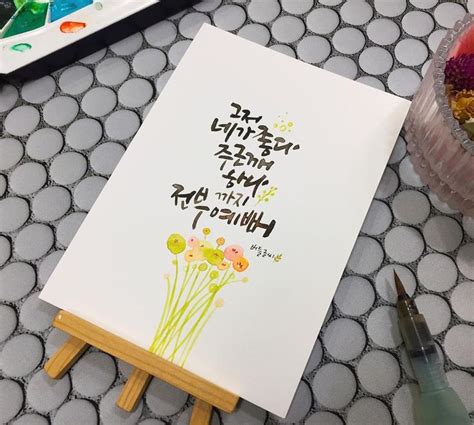 그저
네가 좋다.
주근깨
하나
까지
전부 예뻐